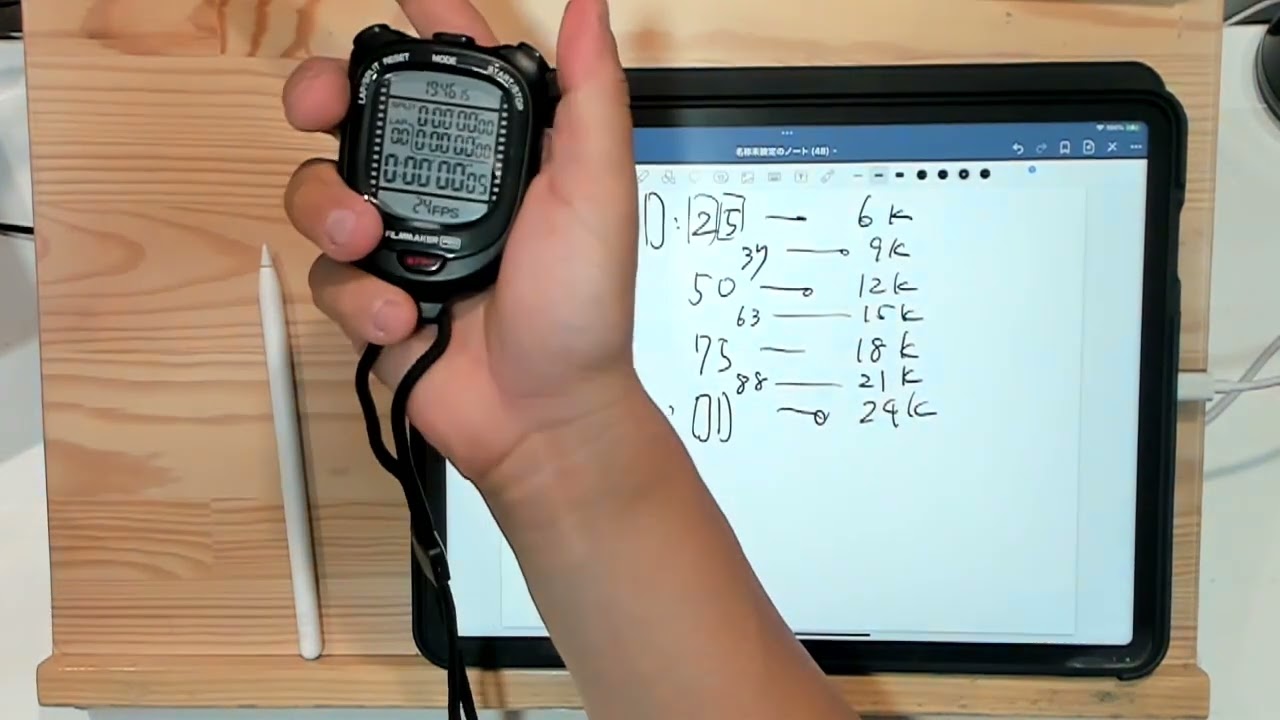 LAP/SPLIT RESET MODE START/STOP
SPLIT 0:00'00 00
LAP 00 0:00'00 00
0:00'00 05
24FPS
FILMMAKER PRO
名称未設定のノート (48)
0:25 — 6k
37 — 9k
50 — 12k
63 — 15k
75 — 18k
88 — 21k
: 01 — 24k